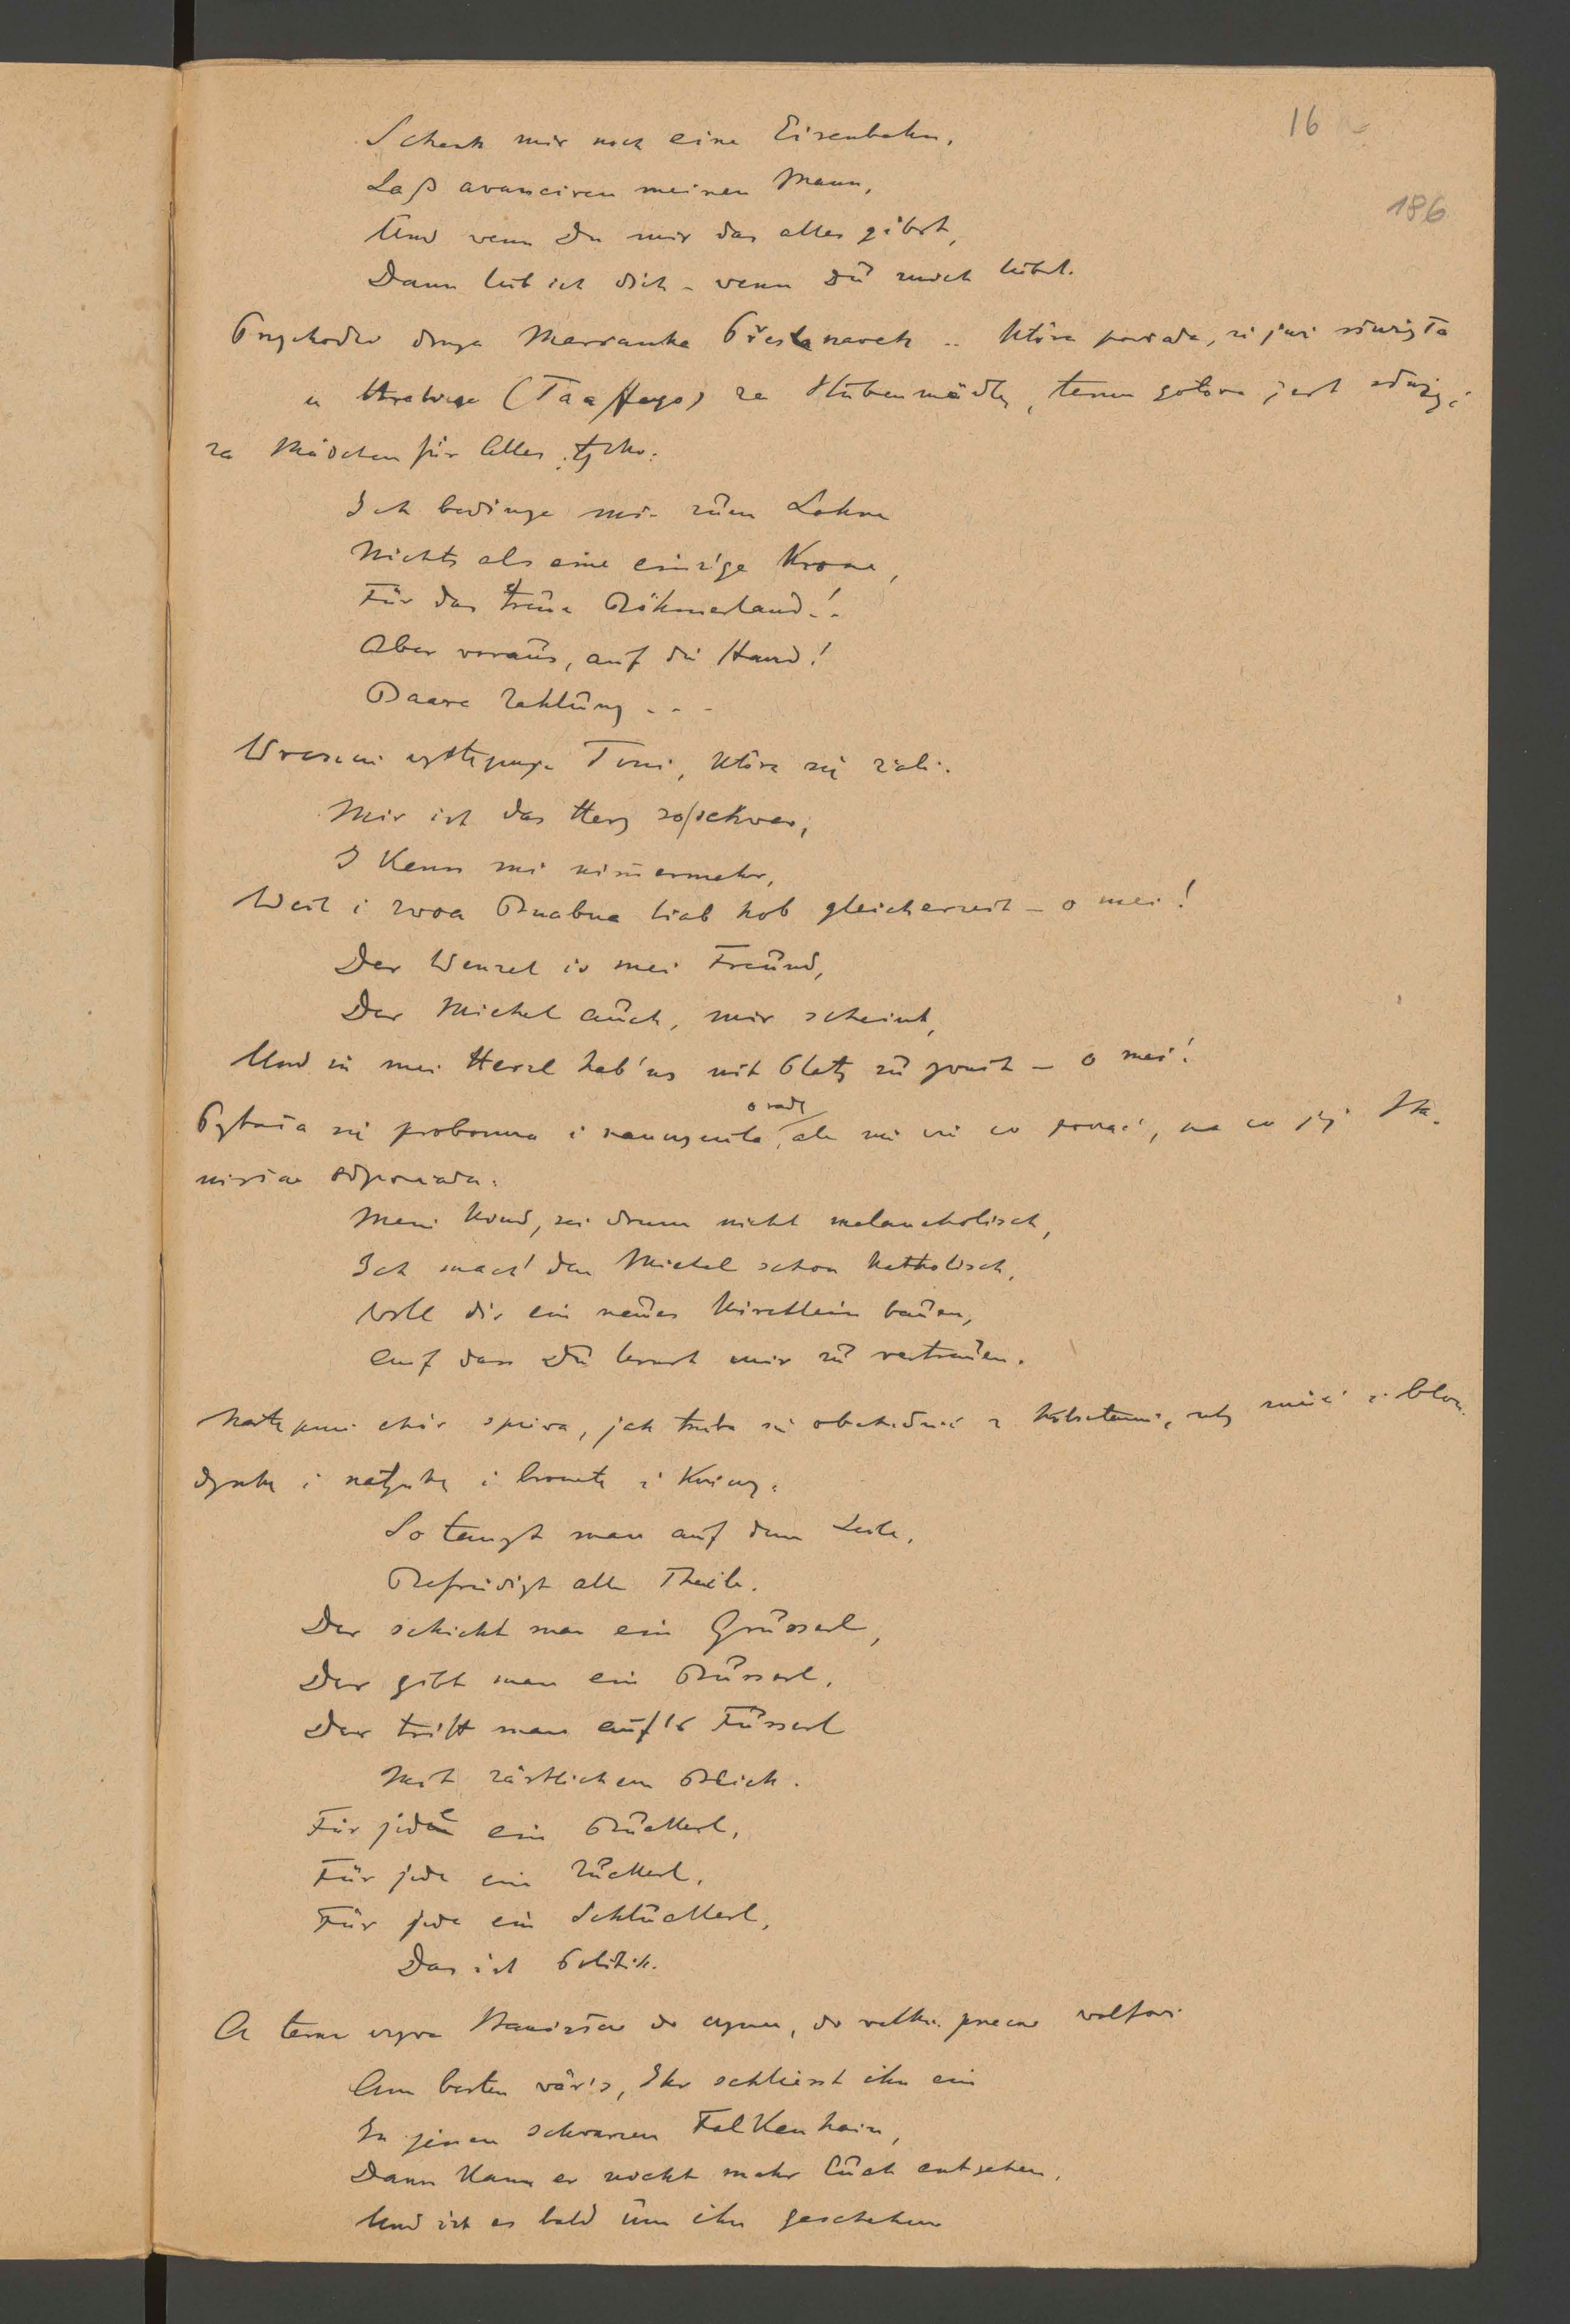 16
186
Schenk mir noch eine Eisenbahn,
Laß avanciren meinen Mann,
Und wenn Du mir das alles gibst,
Dann lieb ich dich - wenn Dū mich liebst.
Przychodzi druga Marianka Břestanavek .. która powiada, że już służyła
u Hrabiego (Taaffego) za Stubenmädl, teraz gotowa jest służyć
za Mädchen für Alles, tylko:
Ich bedinge mir zūm Lohne
Nichts als eine einzige Krone,
Für das treūe Böhmerland!
Aber voraūs, auf die Hand!
Baare Zahlūng - - -
Wreszcie występuje Toni, która się żali:
Mir ist das Herz so/schwer,
I Kenn mi nim̄ermehr,
Weil i zwoa Buabna liab hob gleicherzeit - o mei!
Der Wenzel is mei Freūnd,
Der Michel aūch, mir scheint,
Und in mei Herzl hab'ns nit Platz zū zweit - o mei!
Pytała się proboszcza i nauczyciela o radę, ale nie wie co począć, na co jej Sta-
nisław odpowiada:
Mein Kind, sei drum nicht melancholisch,
Ich mach' den Michel schon katholisch,
Will dir ein neūes Kirchlein baūen,
Auf dass Dū lernst mir zū vertraūen.
Następnie chór śpiewa, jak trzeba się obchodzić z kobietami, żeby mieć i blon-
dynkę i szatynkę i brunetkę i
So tanzt man auf dem Seile,
Befriedigt alle Theile.
Der schickt man ein Grüsserl,
Der gibt man ein Büsserl,
Der tritt man aūf's Füsserl
Mit zärtlichem Blick.
Für jede ein Brückerl,
Für jede ein Zuckerl,
Für jede ein Schlückerl,
Das ist Politik.
A teraz wzywa Stanisław do czynu, do walki przeciw wolfowi
Am besten wär's, Ihr schliesst ihn ein
In jenen schwarzen Falkenhain,
Dann kann er nicht mehr Eūch entgehen,
Und ist es bald ūm ihn geschehen